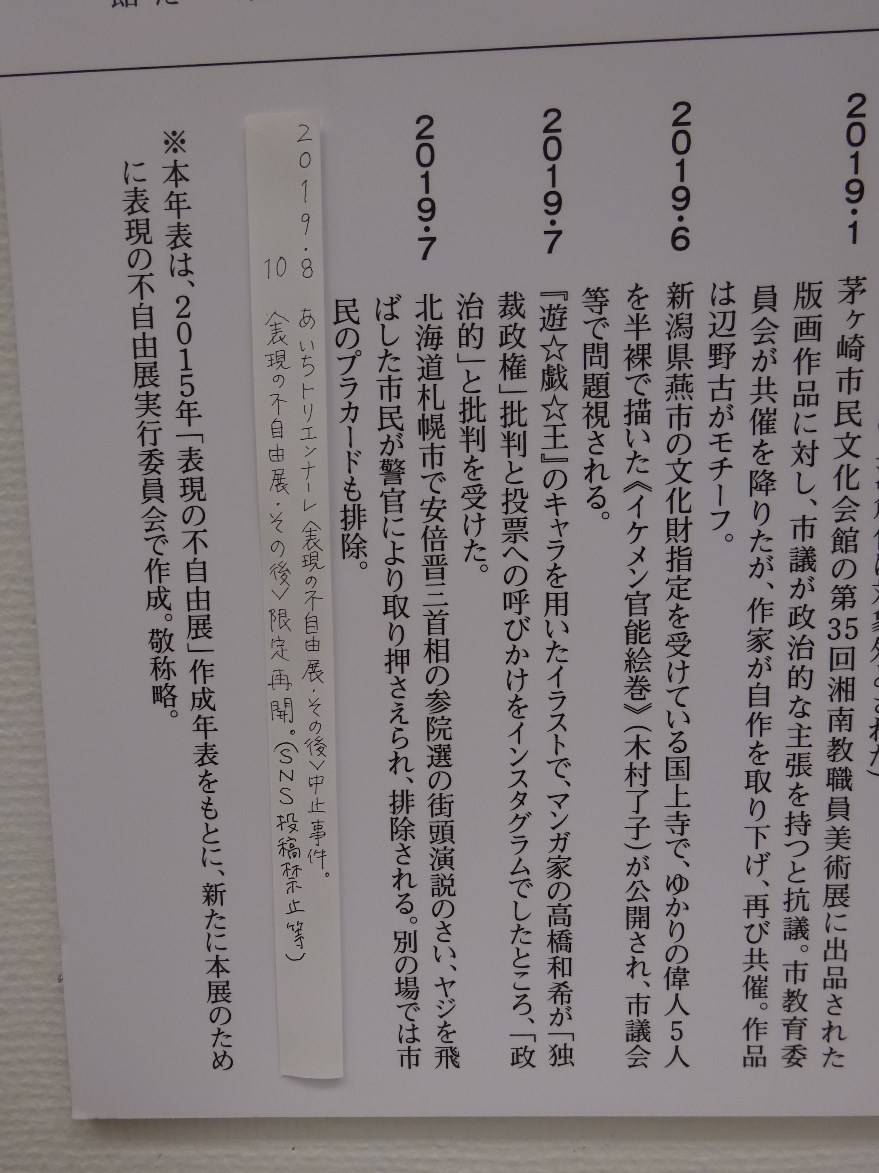 2019・1
茅ヶ崎市民文化会館の第35回湘南教職員美術展に出品された
版画作品に対し、市議が政治的な主張を持つと抗議。市教育委
員会が共催を降りたが、作家が自作を取り下げ、再び共催。作品
は辺野古がモチーフ。
2019・6
新潟県燕市の文化財指定を受けている国上寺で、ゆかりの偉人5人
を半裸で描いた《イケメン官能絵巻》(木村了子)が公開され、市議会
等で問題視される。
2019・7
『遊☆戯☆王』のキャラを用いたイラストで、マンガ家の高橋和希が「独
裁政権」批判と投票への呼びかけをインスタグラムでしたところ、「政
治的」と批判を受けた。
2019・7
北海道札幌市で安倍晋三首相の参院選の街頭演説のさい、ヤジを飛
ばした市民が警官により取り押さえられ、排除される。別の場では市
民のプラカードも排除。
2019.8 あいちトリエンナーレ〈表現の不自由展・その後〉中止事件。
10 〈表現の不自由展・その後〉限定再開。(SNS投稿禁止等)
※本年表は、2015年「表現の不自由展」作成年表をもとに、新たに本展のため
に表現の不自由展実行委員会で作成。敬称略。